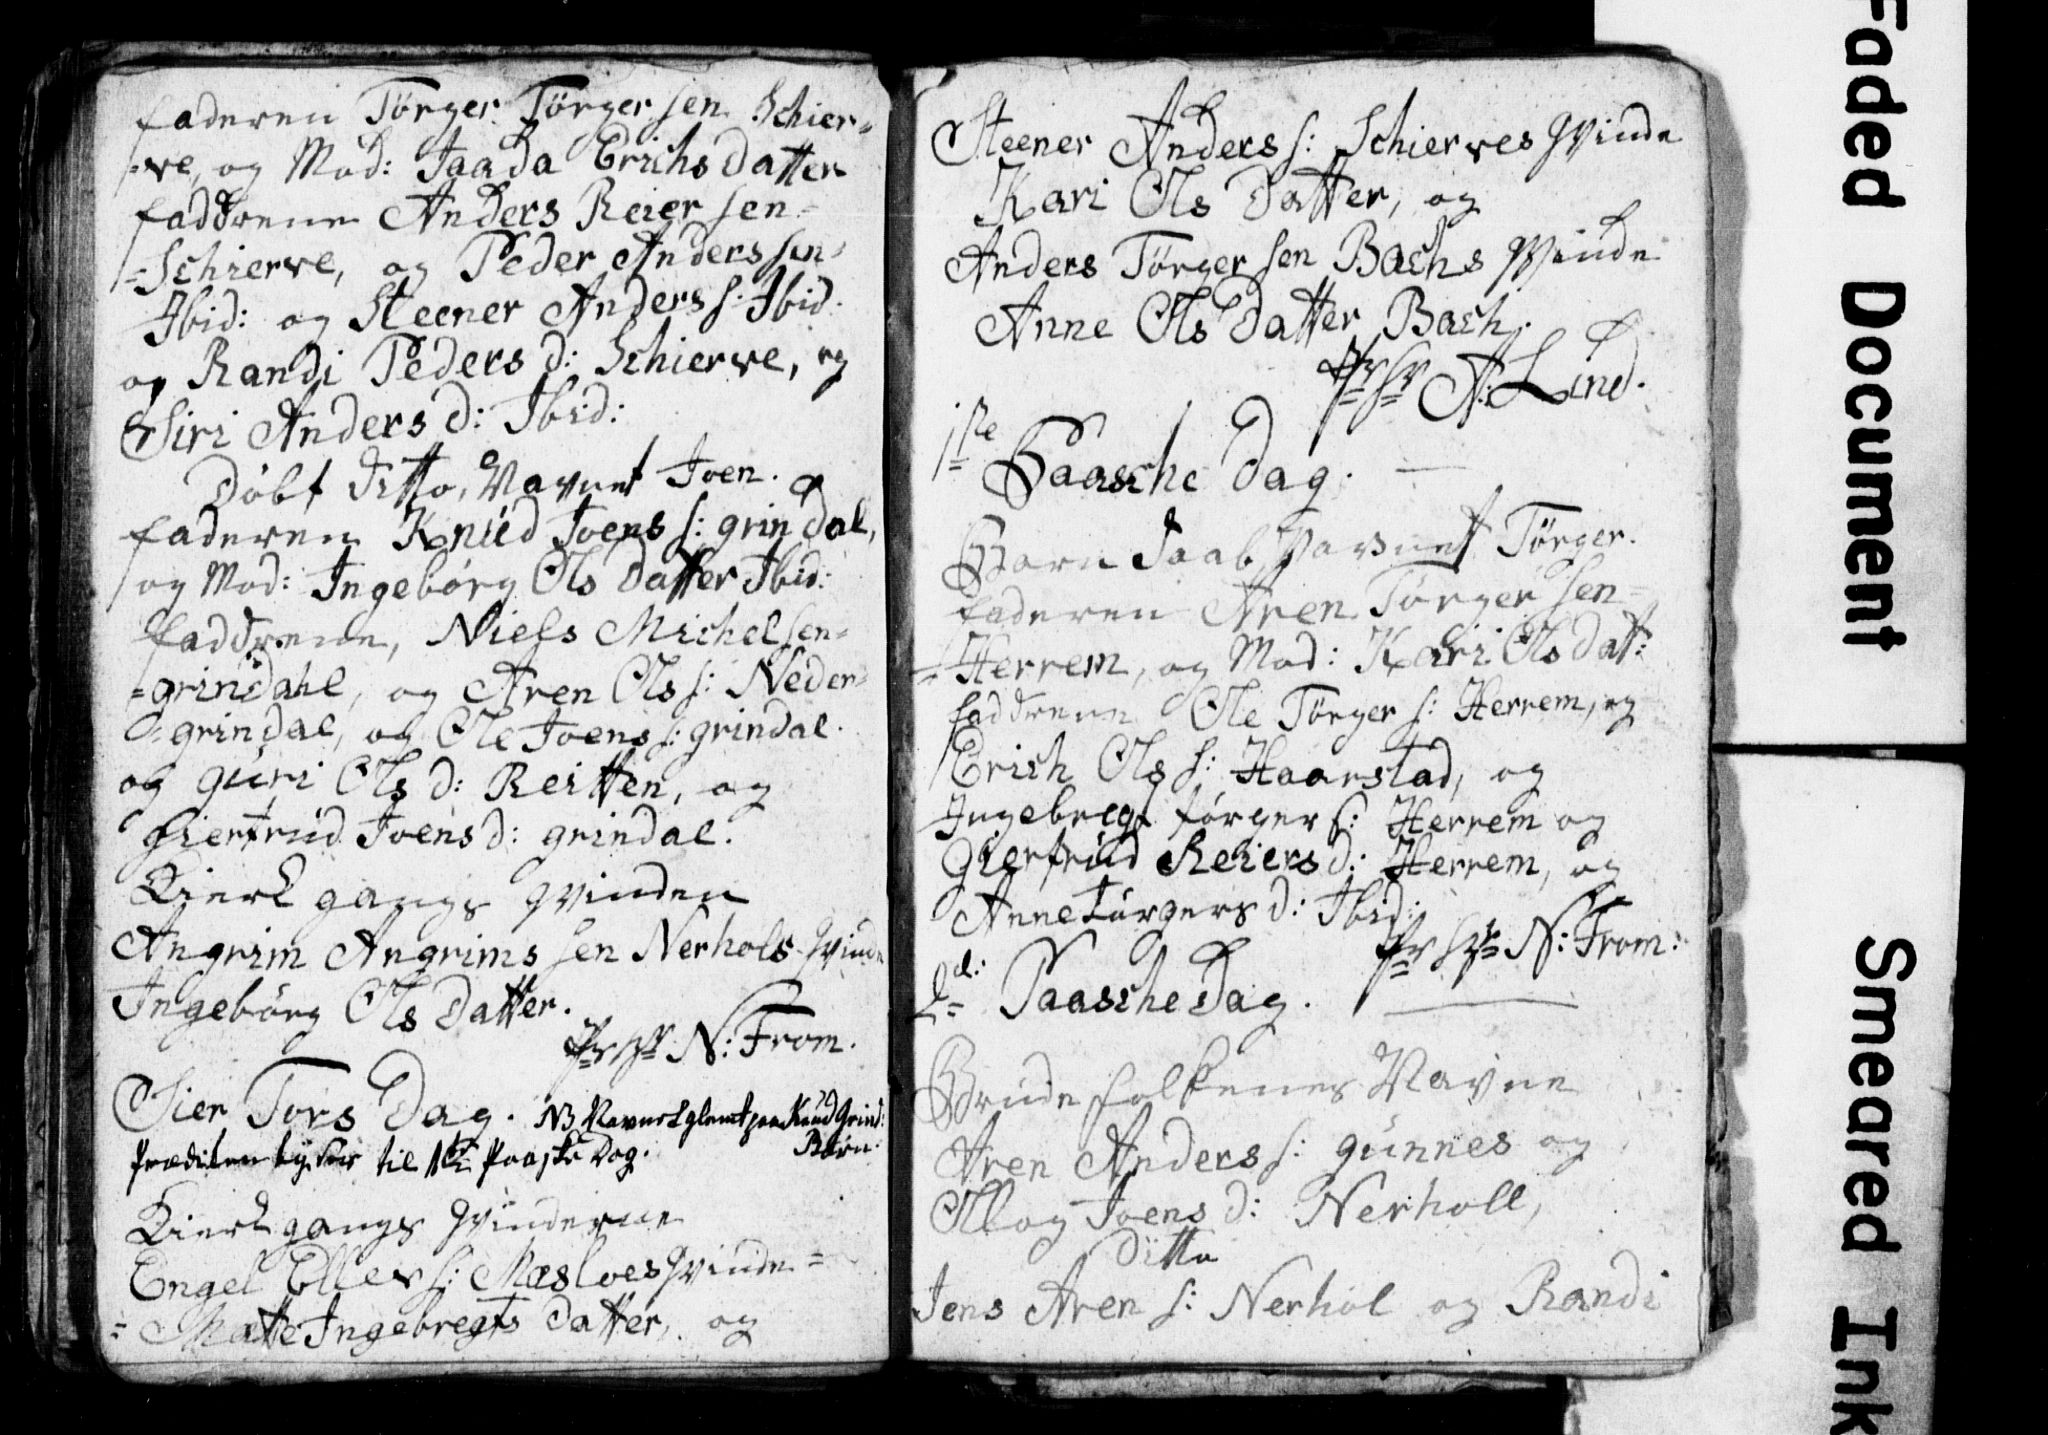 faderen Törger Törgersen Schier=
=ve, og Mod: Jaada Erichsdatter
faddrene Anders Reiersen=
=Schierve, og Peder Anderssen
Ibid: og Steener Anders s: Ibid.
og Randi Peders d: Schierve, og
Siri Anders d: Ibid:
Döbt ditto, Navnet Joen.
faderen Knüd Joens s: grindal,
og Mod: Ingebörg Ols datter Ibid:
faddrene, Niels Michelsen=
=grindahl, og Aren Ols s: Neder=
=grindal, og Ole Joens s: grindal.
og güri Ols d: Reitten, og
Giertrüd Joens d: grindal.
Kierk gangs qvinden
Angrim Angrims sen Nerhols qvinde
Ingebörg Ols datter.
N: From.
Skier Tors Dag. NB Navnet glemt paa Knud Grind:
Børn.
til 1ste Paaske Dag.
Kierk gangs qvinderne
Engel Ellevs: Mæsloes qvinde=
= Matte Ingebregts datter, og
Steener Anders s: Schierves qvinde
Kari Ols Datter, og
Anders Törgersen Bachs qvinde
Anne Ols datter Bach.
A: Lind.
1ste
Paasche Dag.
Barn daab, Navnet Törger.
faderen Aren Törgersen=
=Herrem, og Mod: Kari Ols dat:
faddrene Ole Törger s: Herrem, og
Erich Ols s: Haarstad, og
Ingebregt törger s: Herrem og
Giertrüd Reiers d: Herrem, og
Anne türgers d: Ibid:
N: From:
2d: Paasche Dag.
Brüde folkenes Navne
Aren Anders s: günnes og
Ollog Joens d: Nerholl,
Ditto
Jens Aren s: Nerhol og Randi
Faded Document
Smeared Ink